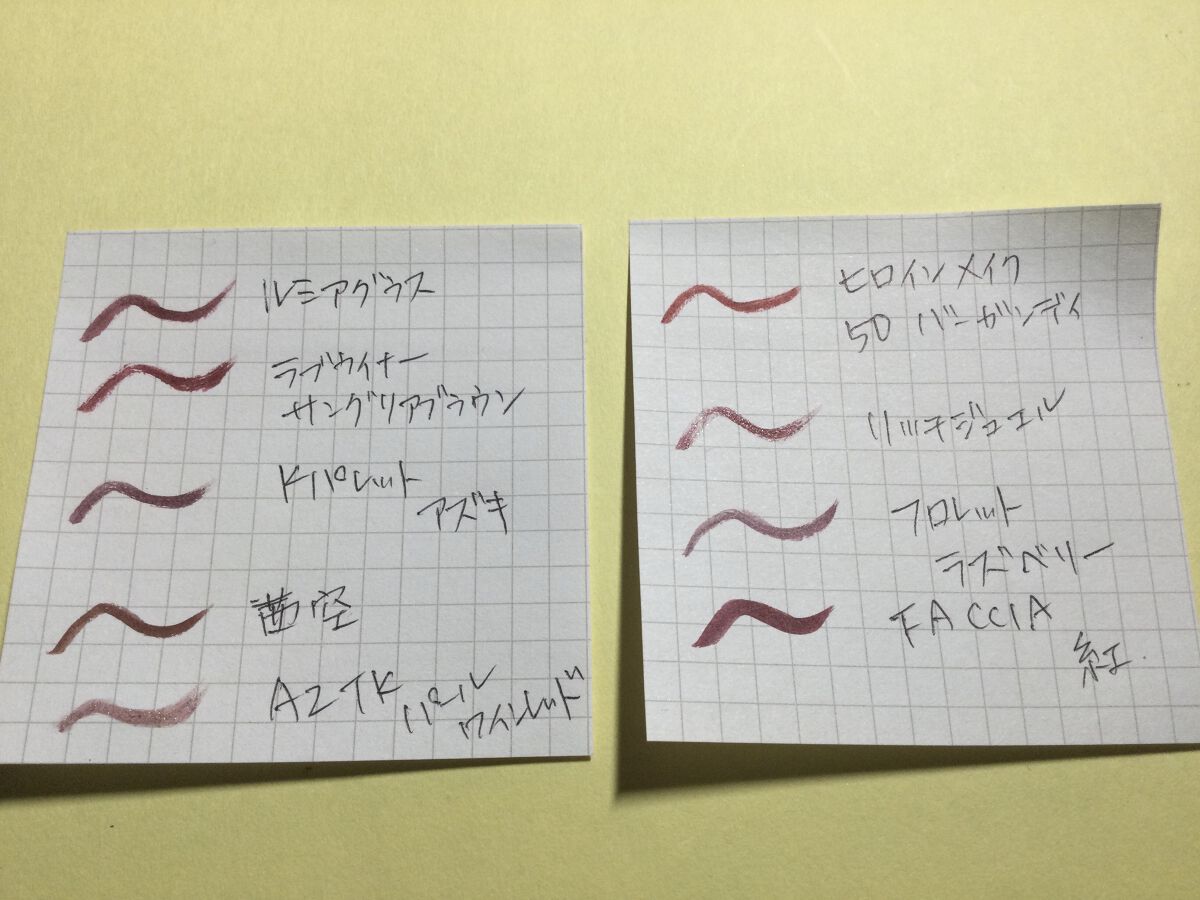 ルミアグラス
ラブウイナー
サングリアブラウン
Kパレット
アズキ
茜空
AZTK パール
ワインレッド
ヒロインメイク
50 バーガンディ
リッチジュエル
フロレット
ラズベリー
FACCIA
紅